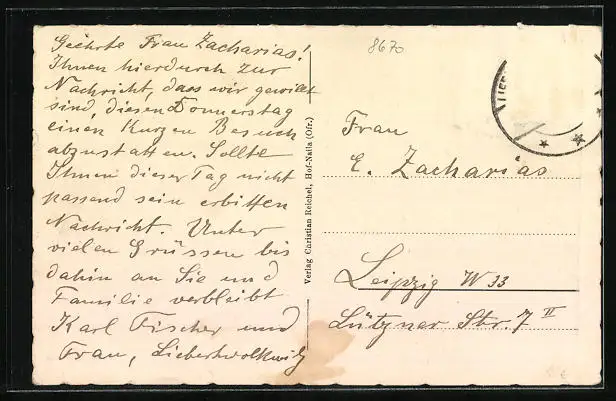 Geehrte Frau Zacharias!
Ihnen hierdurch zur
Nachricht, dass wir gewillt
sind, diesen Donnerstag
einen kurzen Besuch
abzustatten. Sollte
Ihnen dieser Tag nicht
passend sein erbitten
Nachricht. Unter
vielen Grüssen bis
dahin an Sie und
Familie verbleibt
Karl Fischer und
Frau, Liebertwolkwitz
Verlag Christian Reichel, Hof-Naila (Ofr.)
8670
Frau
E. Zacharias
Leipzig W 33
Lützner Str. 7 II